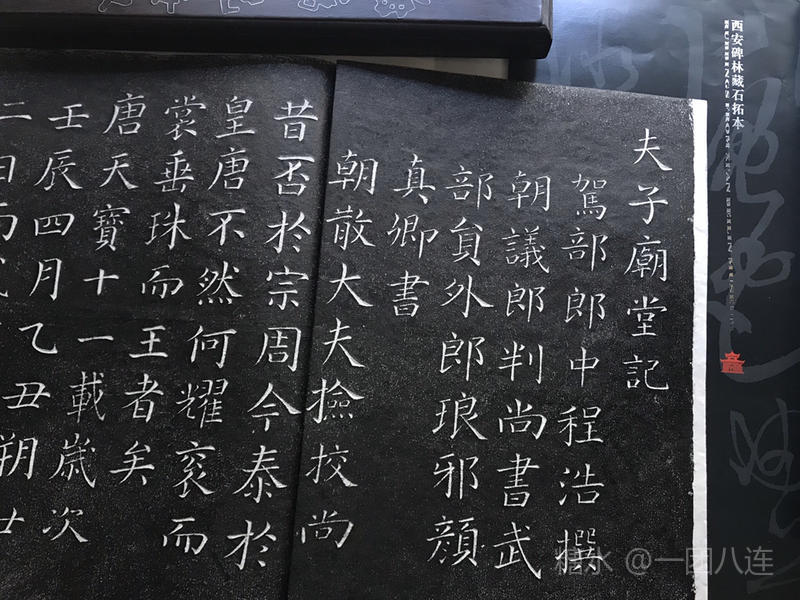 夫子廟堂記
駕部郎中程浩撰
朝議郎判尚書武
部貟外郎琅邪顔
真卿書
朝散大夫撿挍尚
昔否於宗周今泰於
皇唐不然何耀衮而
裳垂珠而王者矣
唐天寶十一載歲次
壬辰四月乙丑朔廿
二日
西安碑林藏石拓本
糖水 @一团八连